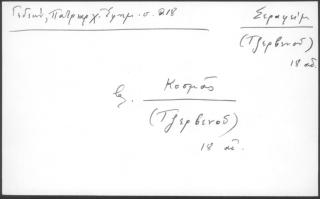 Γεδεών, Πατριαρχ. Ἐφημ. σ. 218
Σεραφείμ
(Τζερβενοῦ)
18 αἰ.
βλ. Κοσμᾶς
(Τζερβενοῦ)
18 αἰ.